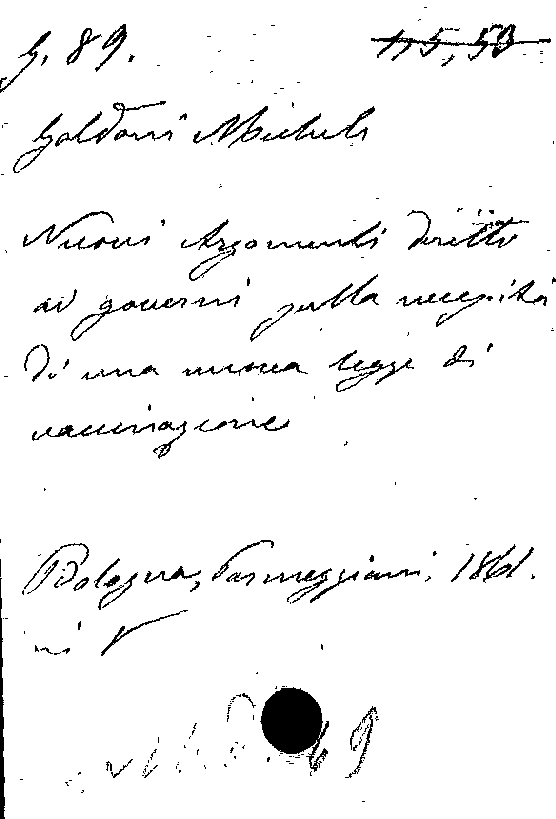 G. 89. 15,53
Goldoni Michele
Nuovi Argomenti diretti
ai governi sulla necessità
di una nuova legge di
vaccinazione
Bologna, Parmeggiani, 1861.
in 8